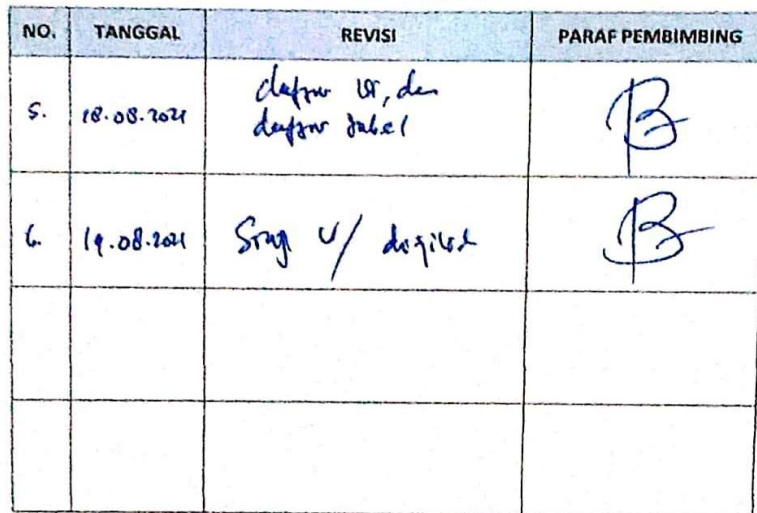 NO. TANGGAL REVISI PARAF PEMBIMBING
5. 18.08.2021 daftar isi, dan
daftar tabel
6. 19.08.2021 u/